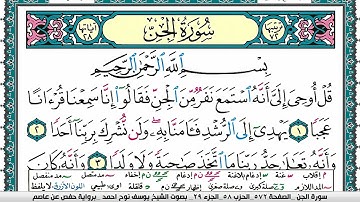 سُورَةُ الْجِنِّ
بِسْمِ اللَّهِ الرَّحْمَٰنِ الرَّحِيمِ
قُلْ أُوحِىَ إِلَىَّ أَنَّهُ ٱسْتَمَعَ نَفَرٌ مِّنَ ٱلْجِنِّ فَقَالُوٓا۟ إِنَّا سَمِعْنَا قُرْءَانًا
عَجَبًا ١ يَهْدِىٓ إِلَى ٱلرُّشْدِ فَـَٔامَنَّا بِهِۦ وَلَن نُّشْرِكَ بِرَبِّنَآ أَحَدًا ٢
وَأَنَّهُۥ تَعَٰلَىٰ جَدُّ رَبِّنَا مَا ٱتَّخَذَ صَٰحِبَةً وَلَا وَلَدًا ٣ وَأَنَّهُۥ كَانَ
سورة الجن الصفحة ٥٧٢ الحزب ٥٨ الجزء ٢٩ بصوت الشيخ يوسف نوح احمد برواية حفص عن عاصم